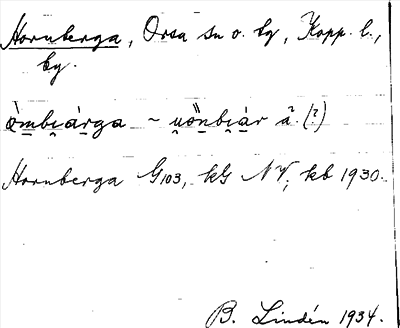 Hornberga, Orsa sn o. tg, Kopp. l.,
by.
òmbiárga ~ uö̀nbiár å̀ (?)
Hornberga G103, kG NV, kb 1930.
B. Lindén 1934.